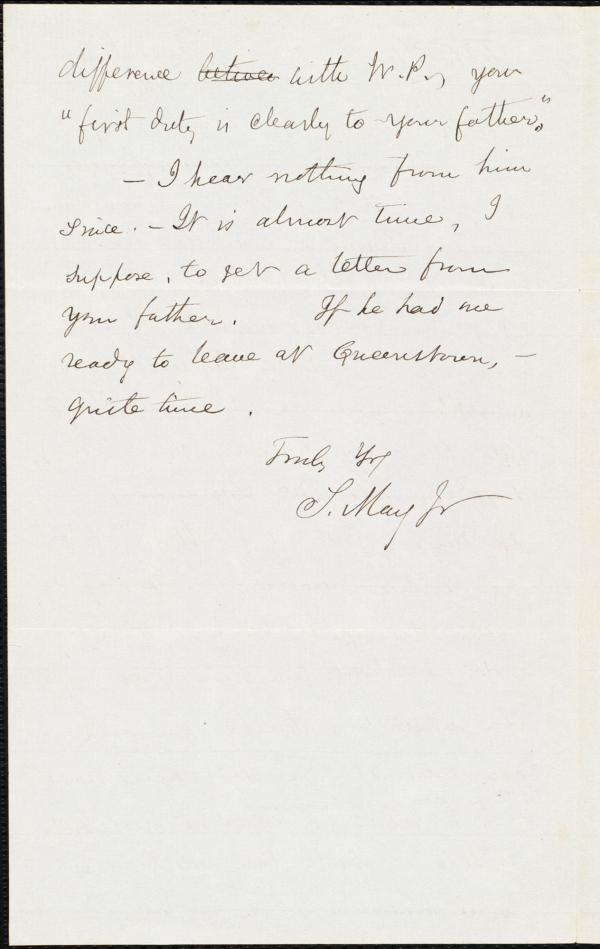 difference between with W. P., your
"first duty is clearly to your father."
— I hear nothing from him
since. — It is almost time, I
suppose, to get a letter from
your father. If he had one
ready to leave at Queenstown, —
quite time.
Truly Yrs
S. May Jr